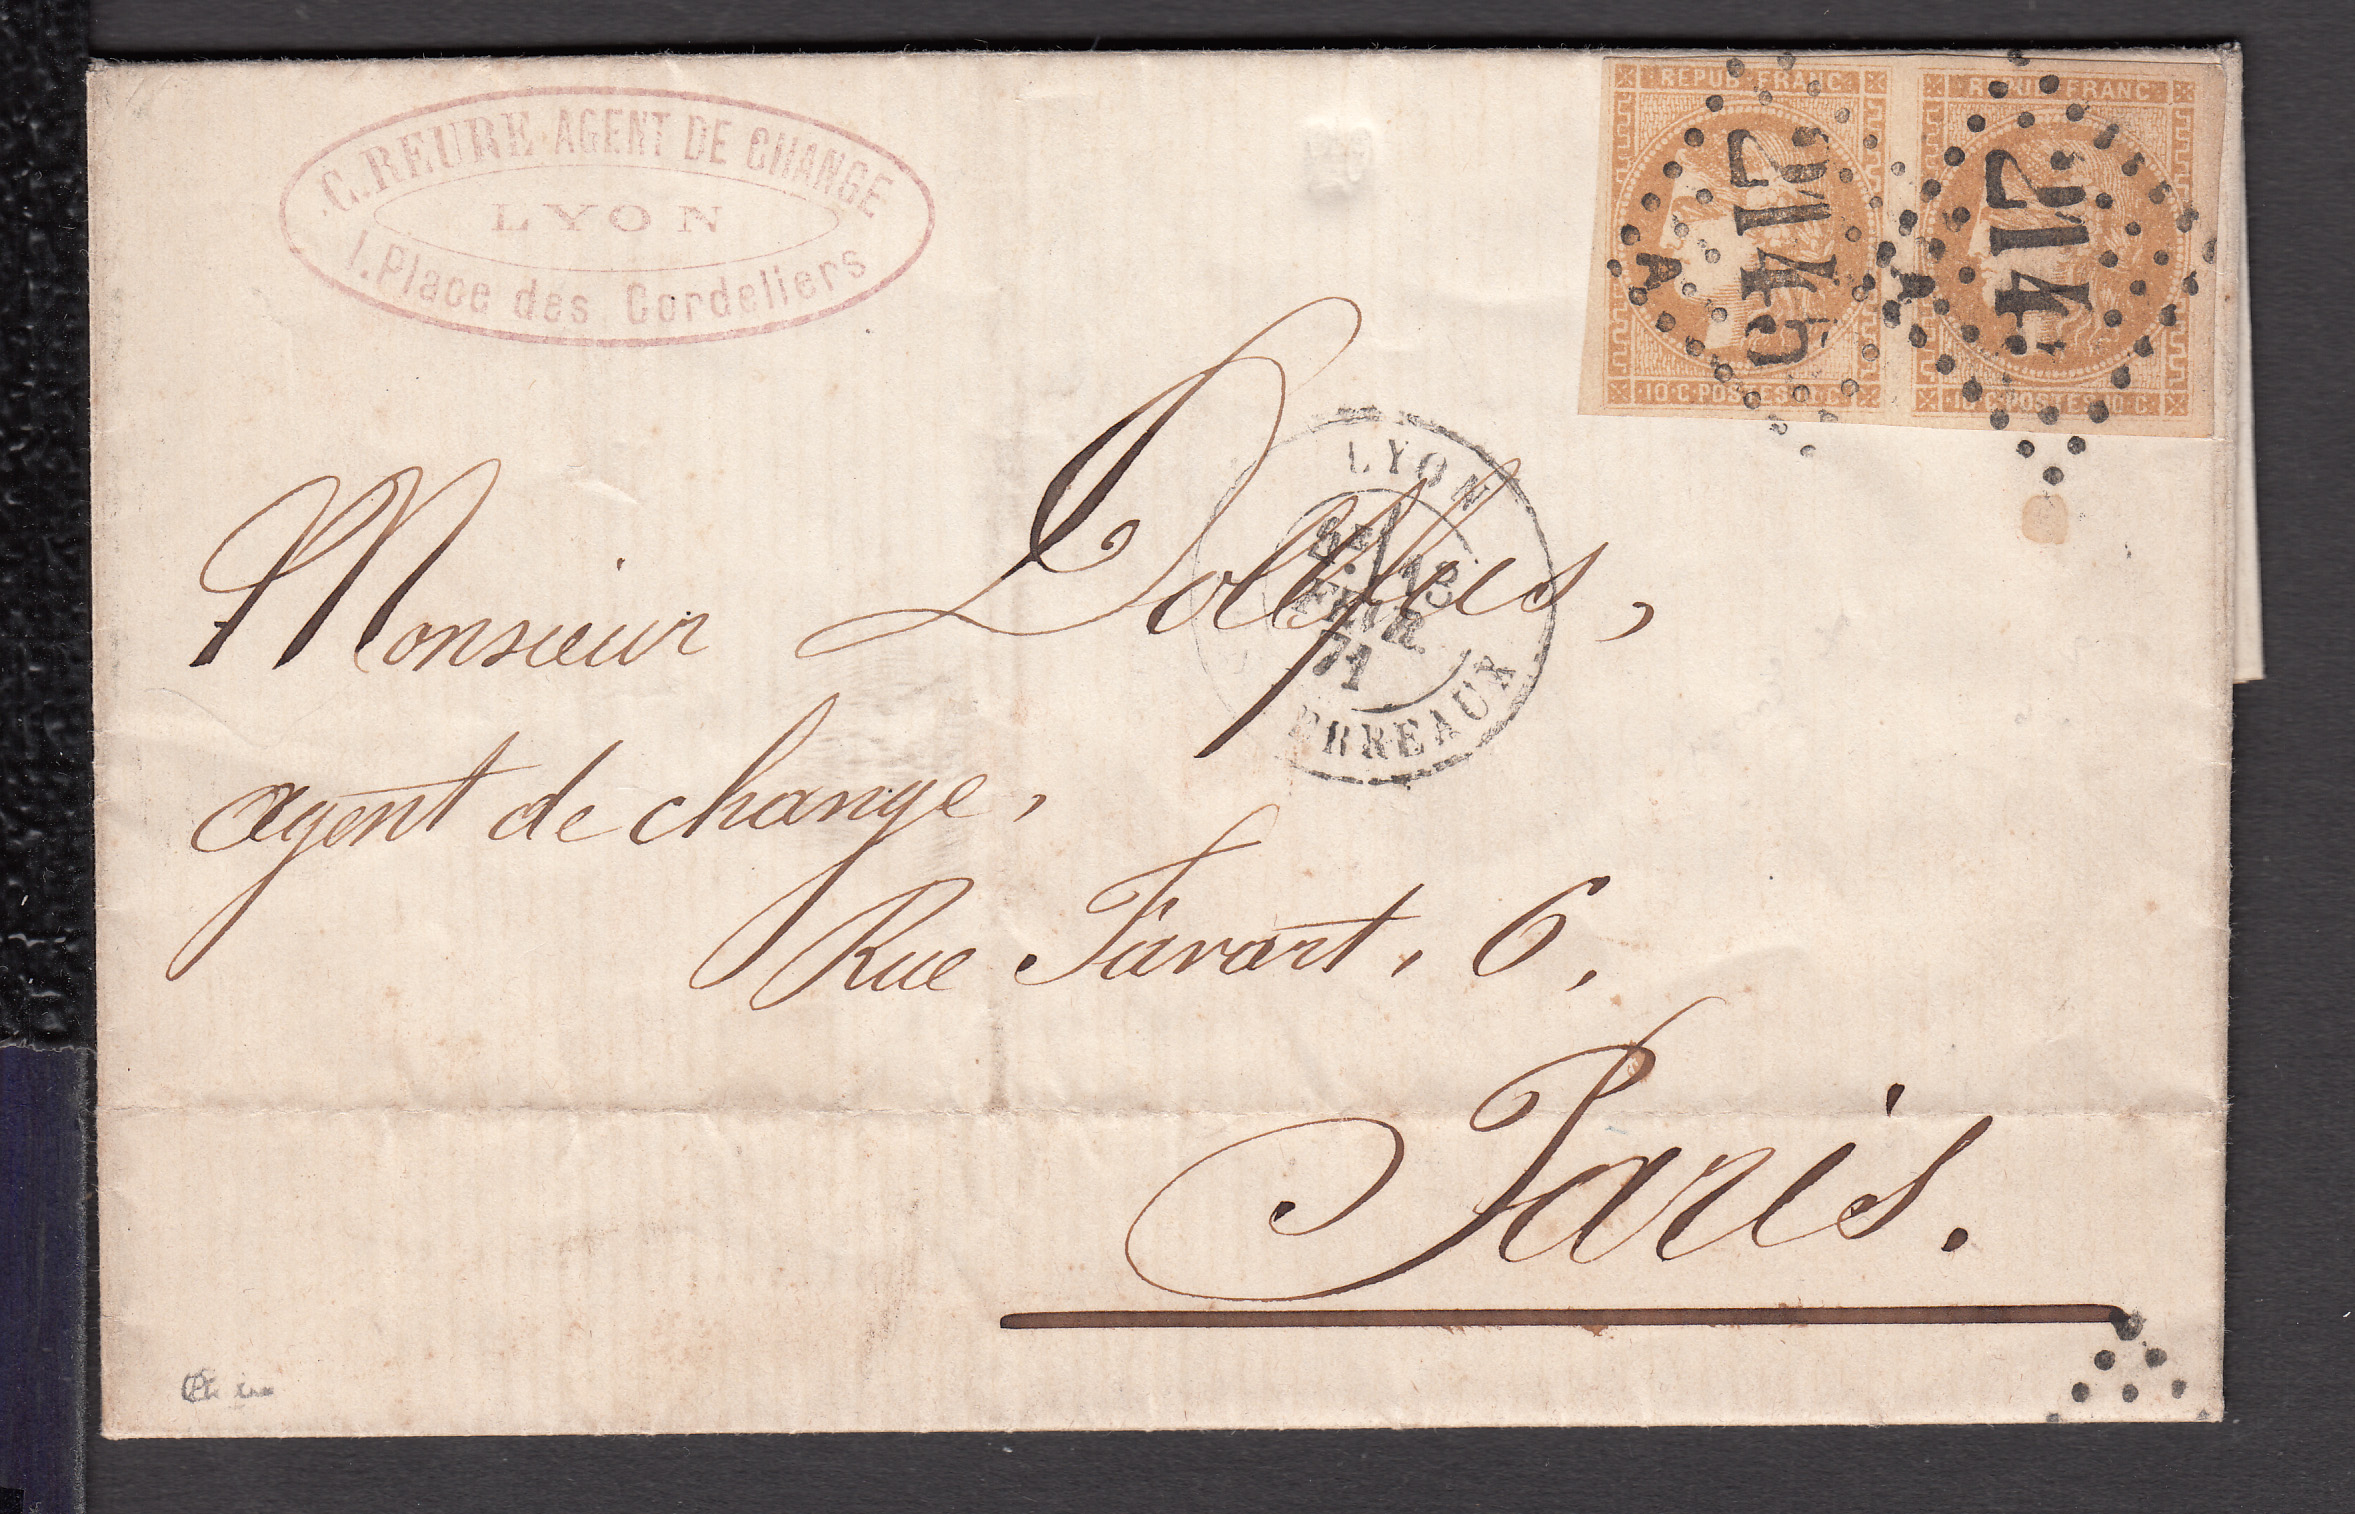 C. REURE AGENT DE CHANGE
LYON
1. Place des Cordeliers
REPUB FRANC
2145
A
10 C POSTES 10 C
REPUB FRANC
214
A
10 C POSTES 10 C
LYON
13
FEVR.
71
ERREAUX
Monsieur Dollfus,
agent de change,
Rue Favart, 6,
Paris.